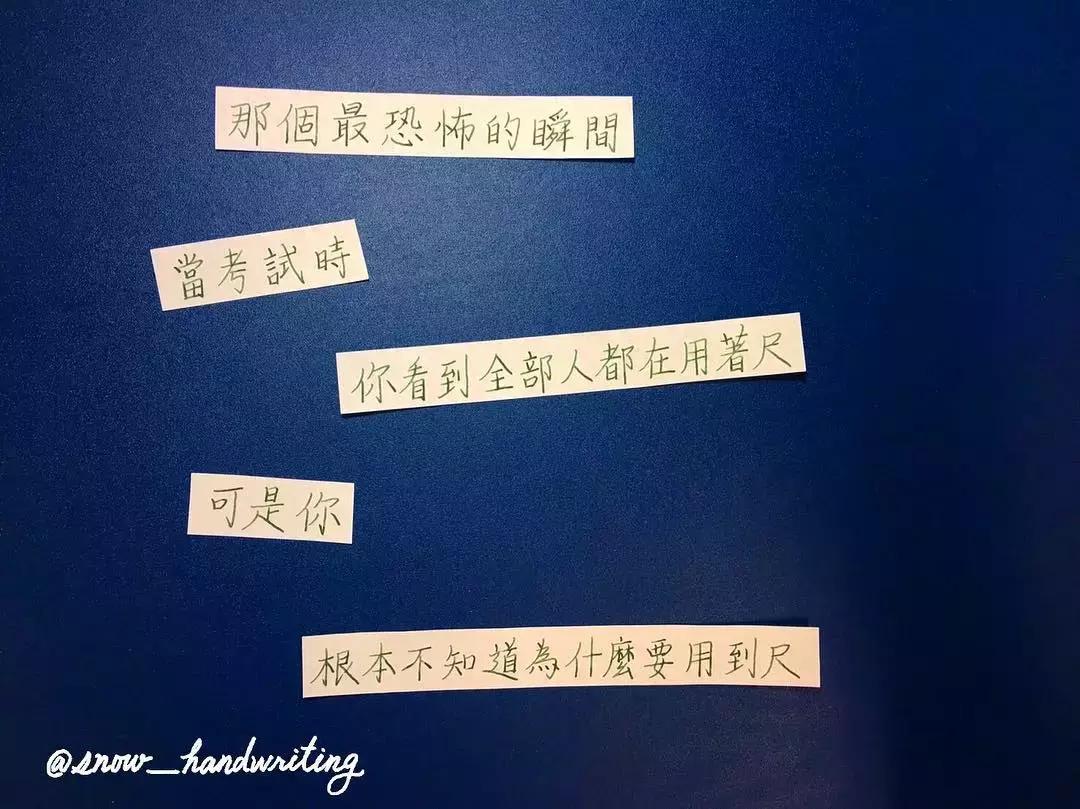 那個最恐怖的瞬間
當考試時
你看到全部人都在用著尺
可是你
根本不知道為什麼要用到尺
@snow_handwriting